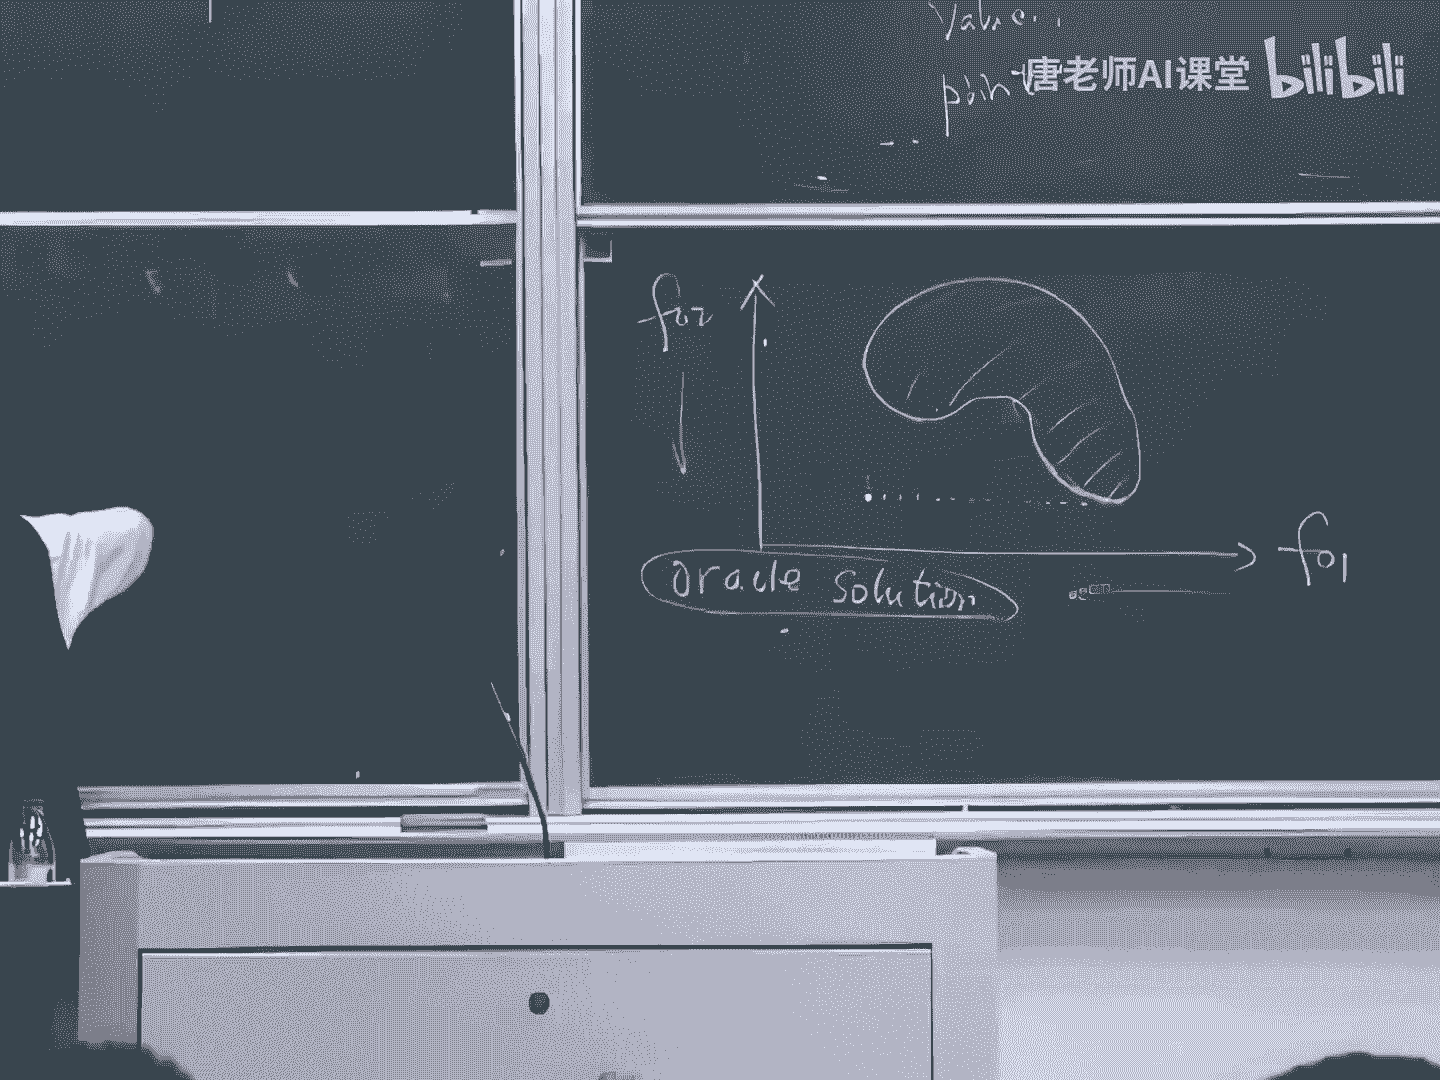 Value..
point
唐老师AI课堂 bilibili
f02
f01
oracle solution